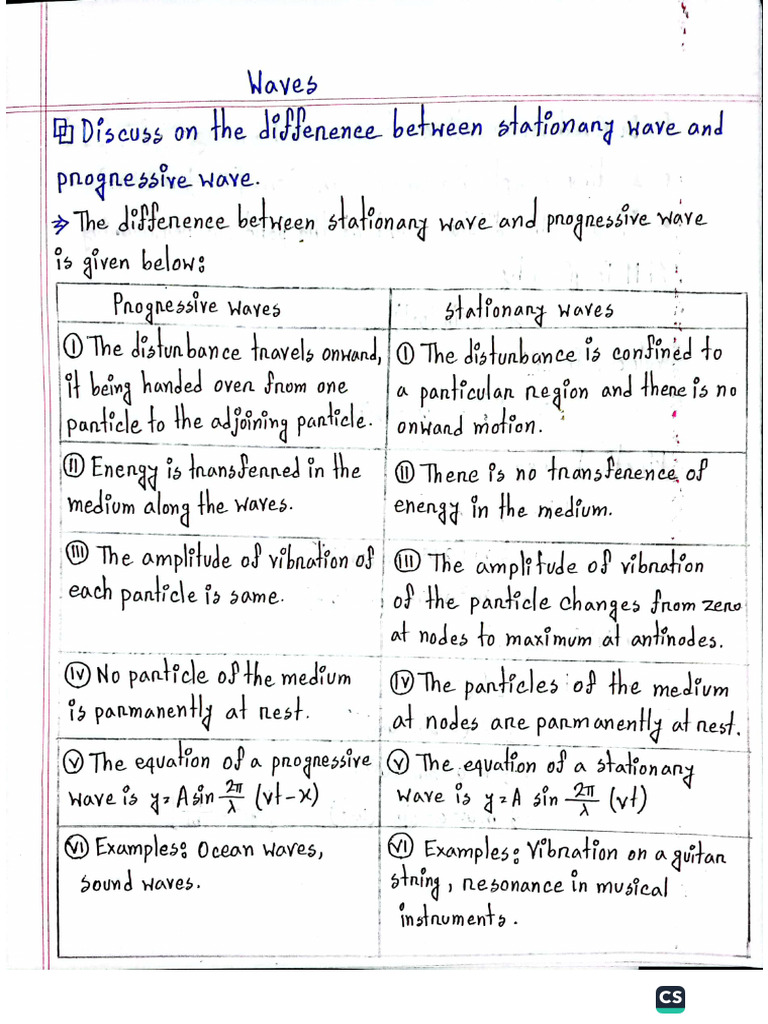 Waves
Discuss on the difference between stationary wave and
progressive wave.
⇒ The difference between stationary wave and progressive wave
is given below:
Progressive waves
Stationary waves
(I) The disturbance travels onward,
it being handed over from one
particle to the adjoining particle.
(I) The disturbance is confined to
a particular region and there is no
onward motion.
(II) Energy is transferred in the
medium along the waves.
(II) There is no transference of
energy in the medium.
(III) The amplitude of vibration of
each particle is same.
(III) The amplitude of vibration
of the particle changes from zero
at nodes to maximum at antinodes.
(IV) No particle of the medium
is parmanently at rest.
(IV) The particles of the medium
at nodes are parmanently at rest.
(V) The equation of a progressive
wave is y = A sin 2π/λ (vt-x)
(V) The equation of a stationary
wave is y = A sin 2π/λ (vt)
(VI) Examples: Ocean waves,
sound waves.
(VI) Examples: Vibration on a guitar
string, resonance in musical
instruments.
CS